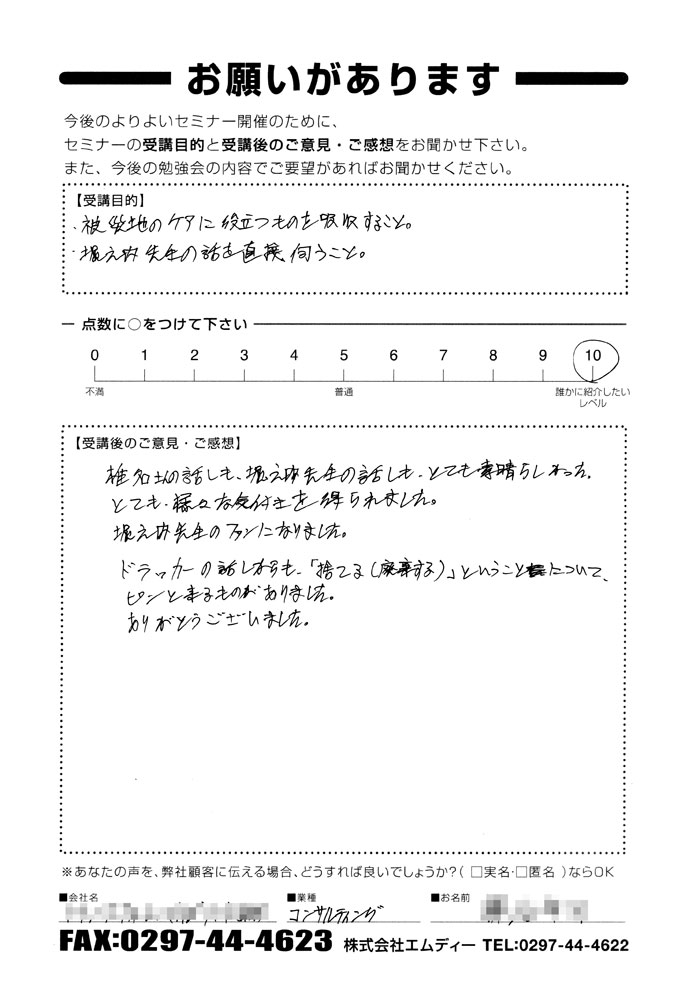 お願いがあります
今後のよりよいセミナー開催のために、
セミナーの受講目的と受講後のご意見・ご感想をお聞かせ下さい。
また、今後の勉強会の内容でご要望があればお聞かせください。
【受講目的】
・被災地のケアに役立つものを吸収すること。
・堀之内先生の話を直接伺うこと。
点数に○をつけて下さい
0 1 2 3 4 5 6 7 8 9 10
不満 普通 誰かに紹介したい
レベル
【受講後のご意見・ご感想】
椎名士の話しも、堀之内先生の話しも、とても素晴らしかった。
とても、様々な気付きを得られました。
堀之内先生のファンになりました。
ドラッカーの話しからも、「捨てる(廃棄する)」ということについて、
ピンと来るものがありました。
ありがとうございました。
※あなたの声を、弊社顧客に伝える場合、どうすれば良いでしょうか?( □実名・□匿名 )ならOK
■会社名 ■業種 ■お名前
コンサルティング
FAX:0297-44-4623 株式会社エムディー TEL:0297-44-4622